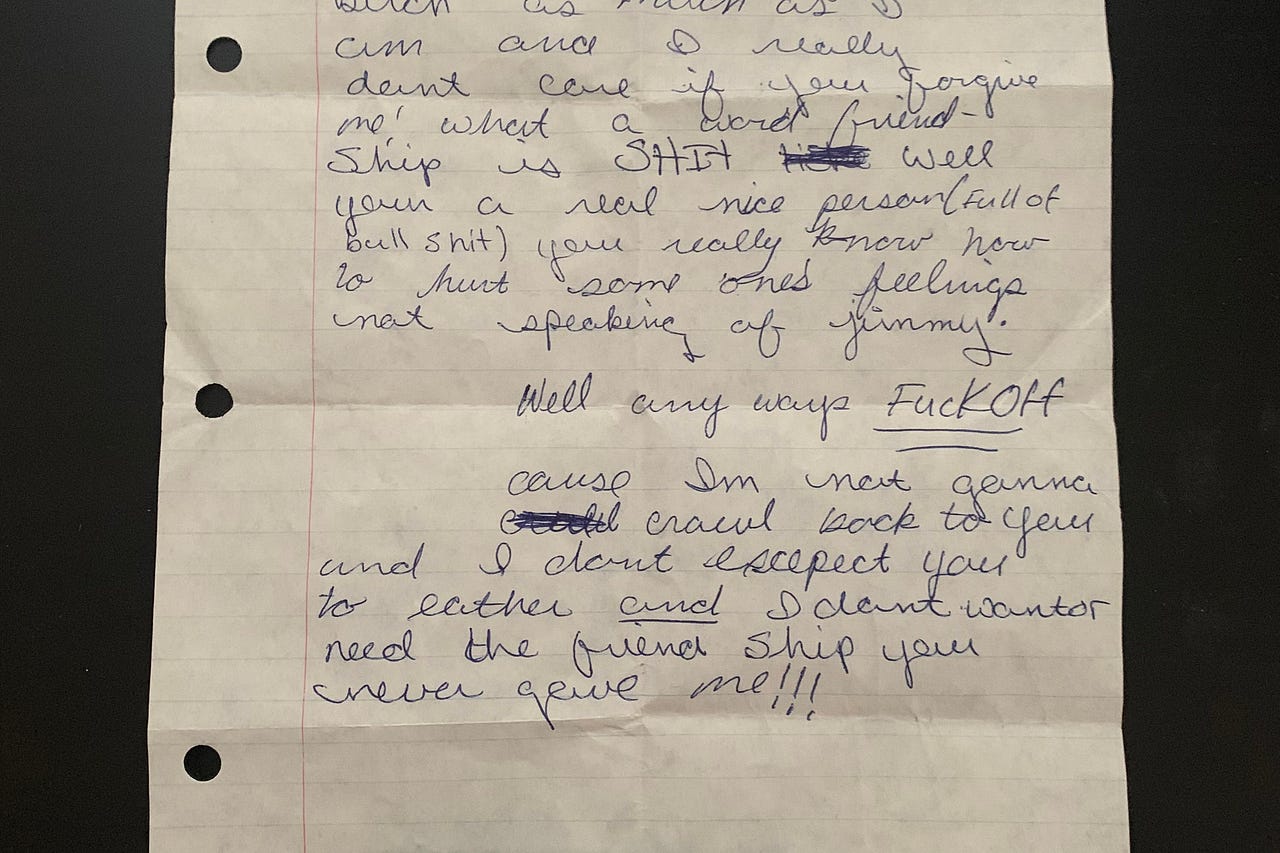 bitch as much as I
am and I really
dont care if you forgive
me! what a word friend-
Ship is SHIt well
your a real nice person(Full of
bull shit) you really know how
to hurt some ones' feelings
not speaking of jimmy.
Well any ways FuCK OFF
cause Im not gonna
crawl back to you
and I dont escepect you
to eather and I dont want or
need the friend Ship you
never gave me!!!